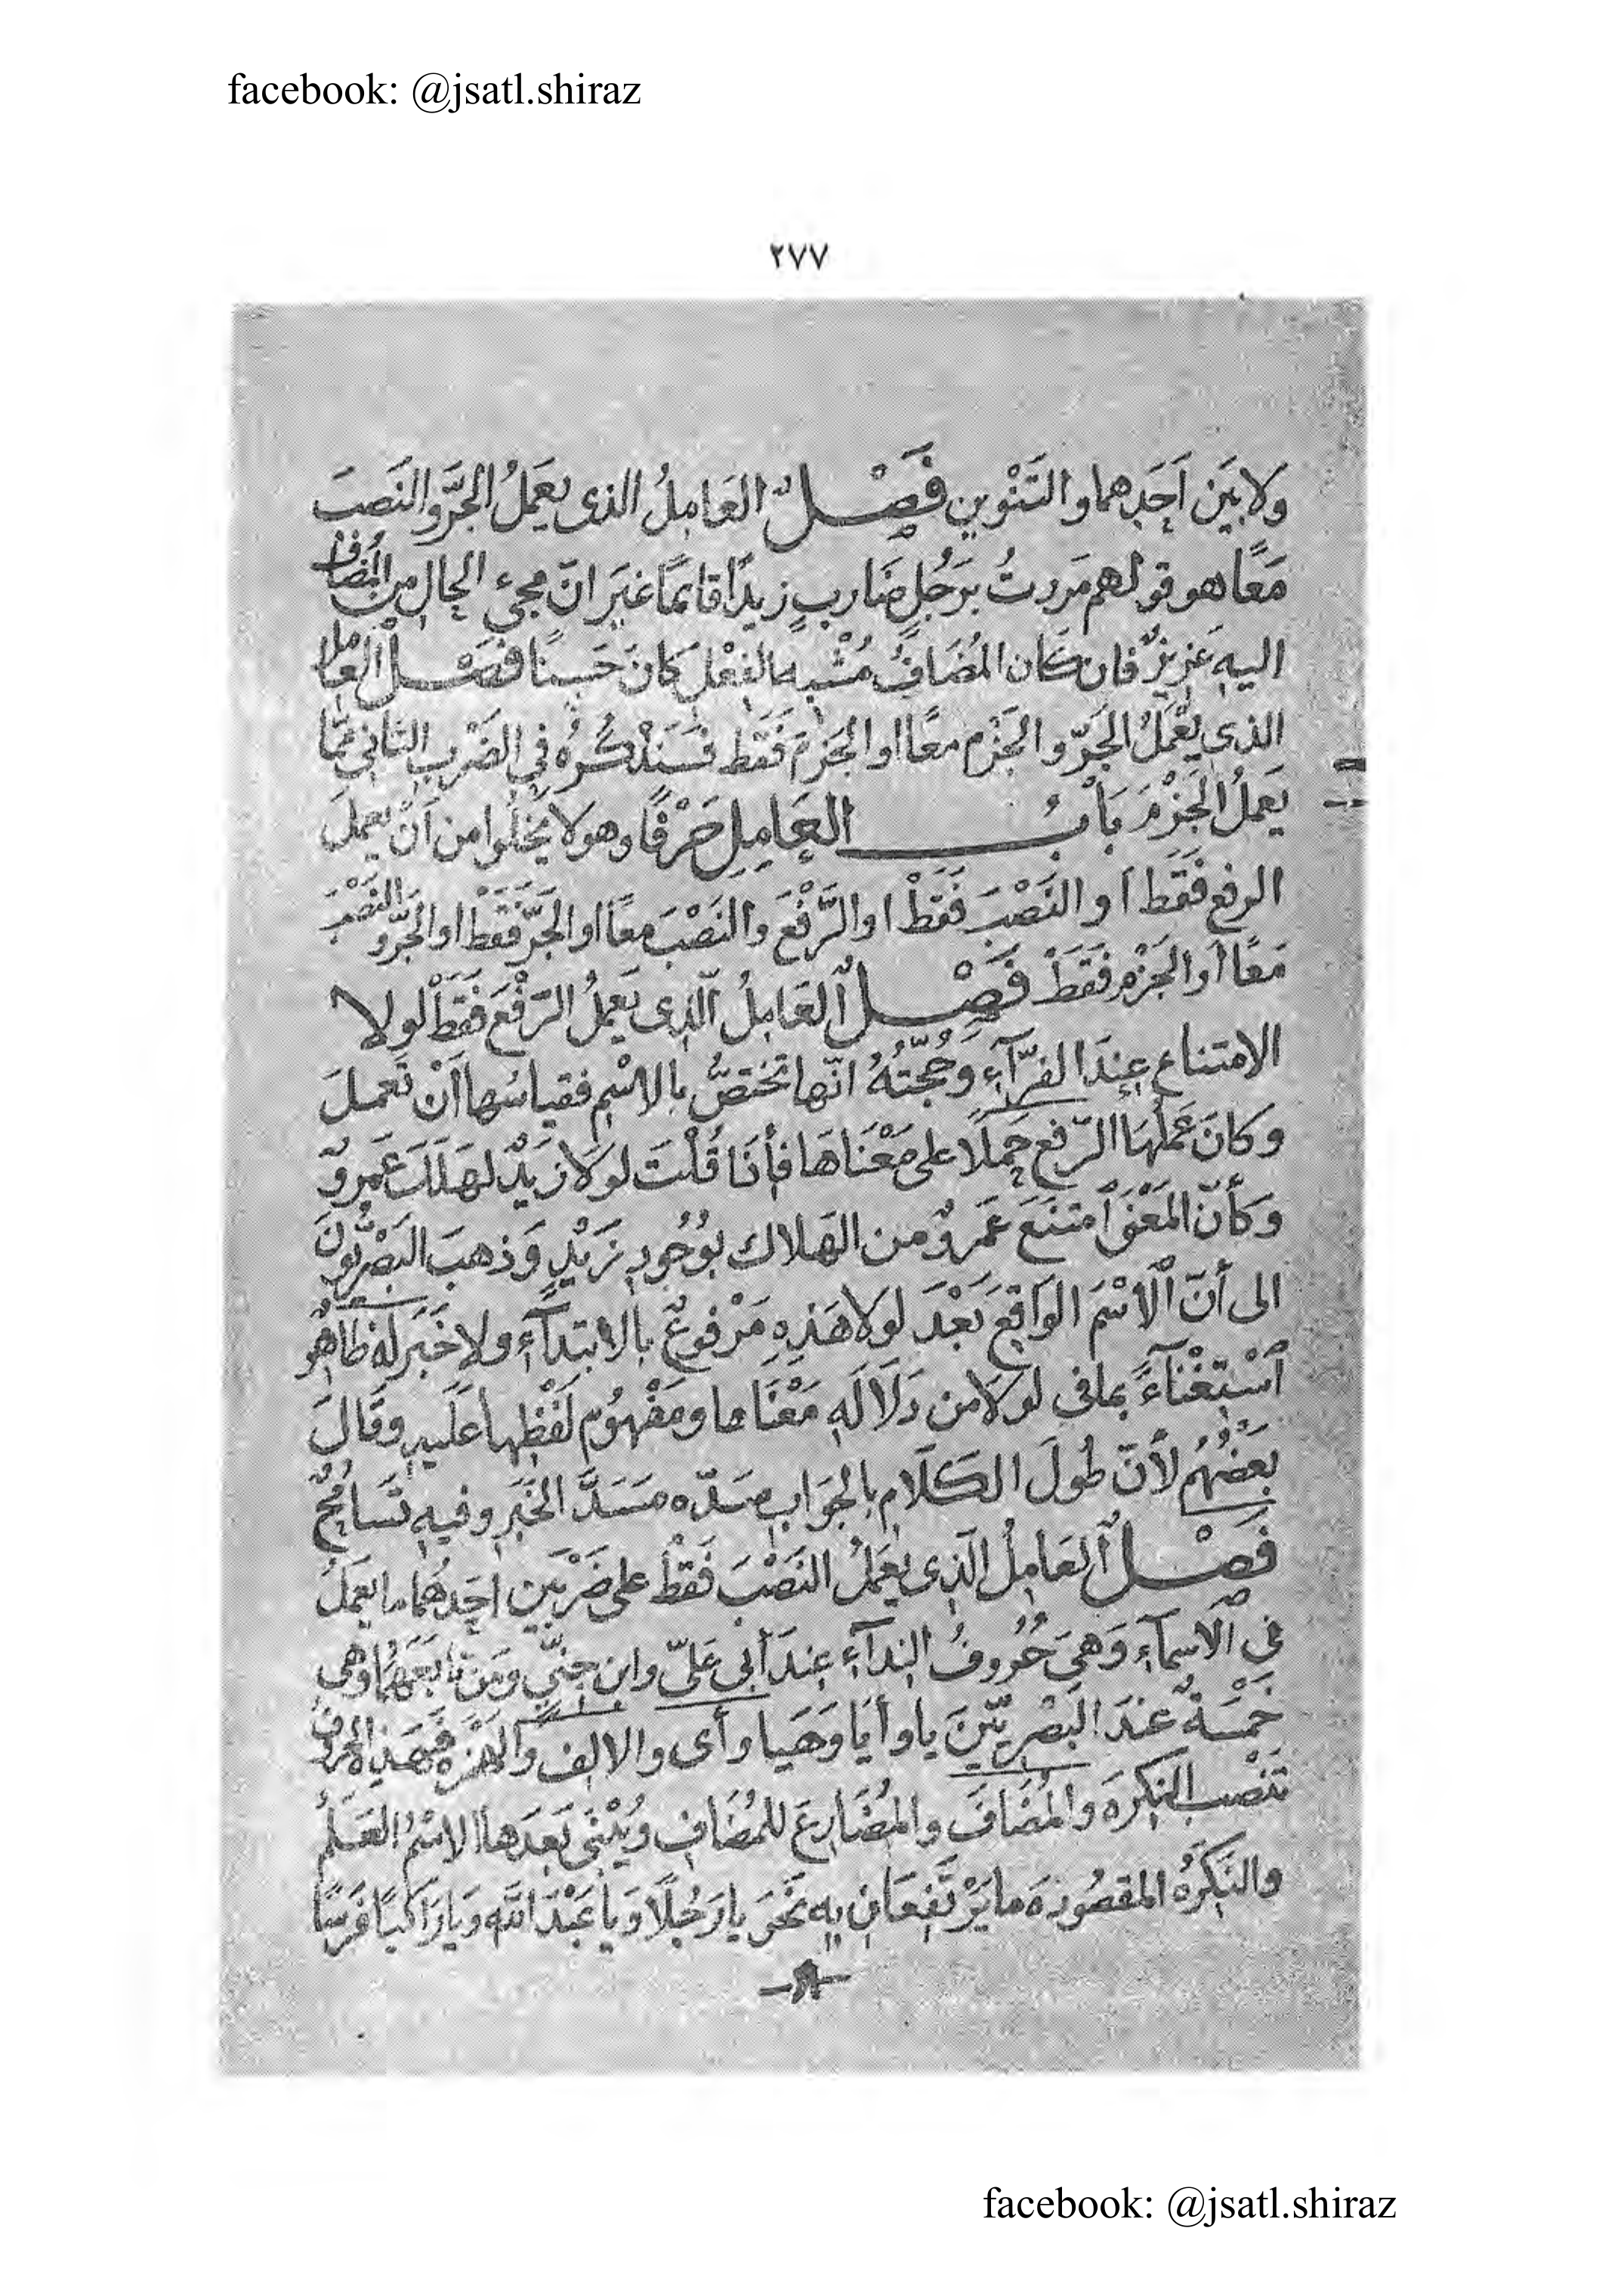 facebook: @jsatl.shiraz
٢٧٧
وَلا بَيَن اَحَدِهما والتَنْوين فَصْــلٌ العَامِلُ الذى يعَملُ الجَرَّ والنَصبَ
مَعًا هو قولهم مَررتُ برَجُلٍ ضَاربٍ زيدًا قائمًا غيَر انّ مجىء الحالِ من المُضاف
اليهِ عَزيزٌ فان كان المُضَافُ مُشْبِه الفِعْل كَانَ حَسِنًا فصْــل العَامل
الذى يَعْمَلُ الجَرّ والجَزْم معًا او الجَزمَ فَقَط فسَنَذْكُرهُ فى الضَرْبِ الثانى ممّا
يَعملُ الجَزْمَ بَابُ العَامِلِ حَرْفًا وهو لا يَخلُوا من اَنْ يعملَ
الرفع فَقَط اَو النَصْبَ فَقَطْ او الرَّفْعَ والنَصْبَ معًا او الجَرّ فَقَطْ او الجَرّ والنَصْبَ
مَعًا أو الجَزْم فقَطَ فَصْــلٌ العَامِلُ الّذِى يَعَملُ الرَّفْعَ فَقَطْ لولا
الامتناع عِندَ الفرّآءِ وَحُجّتُهُ انّها تختصُّ بالاسْمِ فقياسُها اَنْ تَعملَ
وكانَ عَمَلُهَا الرّفع حَملًا على مَعْنَاهَا فأِنَا قُلْتَ لولا زَيْدٌ لهَلَكَ عَمروٌ
وَكأنّ المَعْنَى اَمتنَعَ عَمروٌ من الهَلاك بوُجُودِ زَيْدٍ وَذهبَ البَصْريّونَ
الى أنّ الْأسْمَ الوَاقِعَ بَعْدَ لولا هَذِهِ مَرْفوعٌ بالابتدآءِ ولا خَبَر لهُ ظاهرٌ
اَسْتِغْنَآءً بما فى لولا من دَلَالَهِ مَعْنَاها ومَفْهُوم لَفْظِها عَلَيهِ وقَالَ
بعضُهُم لأنّ طُولَ الكَلَام بالجوَاب سَدّه مَسَدَّ الخَبَرِ وفيهِ تَسَامُحٌ
فَصْــلٌ العَامِلُ الّذِى يعَملُ النَصْبَ فَقَطْ على ضَرْبَين اَحَدُهُمَا ما يعمَلُ
فى الْاسمآءِ وَهىَ حُرُوفُ الندآءِ عِندَ أبى عَلىّ وابن جِنىّ ومَن تابعَهُمَا وهى
خمْسَةٌ عندَ البَصْريّينَ يا وأيَا وَهَيا وأى والالِف والهَمْزة فهَذِه الحُروف
تَنْصب النكِرَة والمُضَافَ والمُضَارِعَ للمُضَافِ ويُبْنَى بَعدَها الاسْمُ العَلَمُ
والنَكِرَةُ المقصُودَة ما يَرْتَفِعَانِ بِهِ نَحْوَ يا رَجُلًا وَيا عَبْدَ اللّه وَيا رَاكبًا فَرَسًا
facebook: @jsatl.shiraz